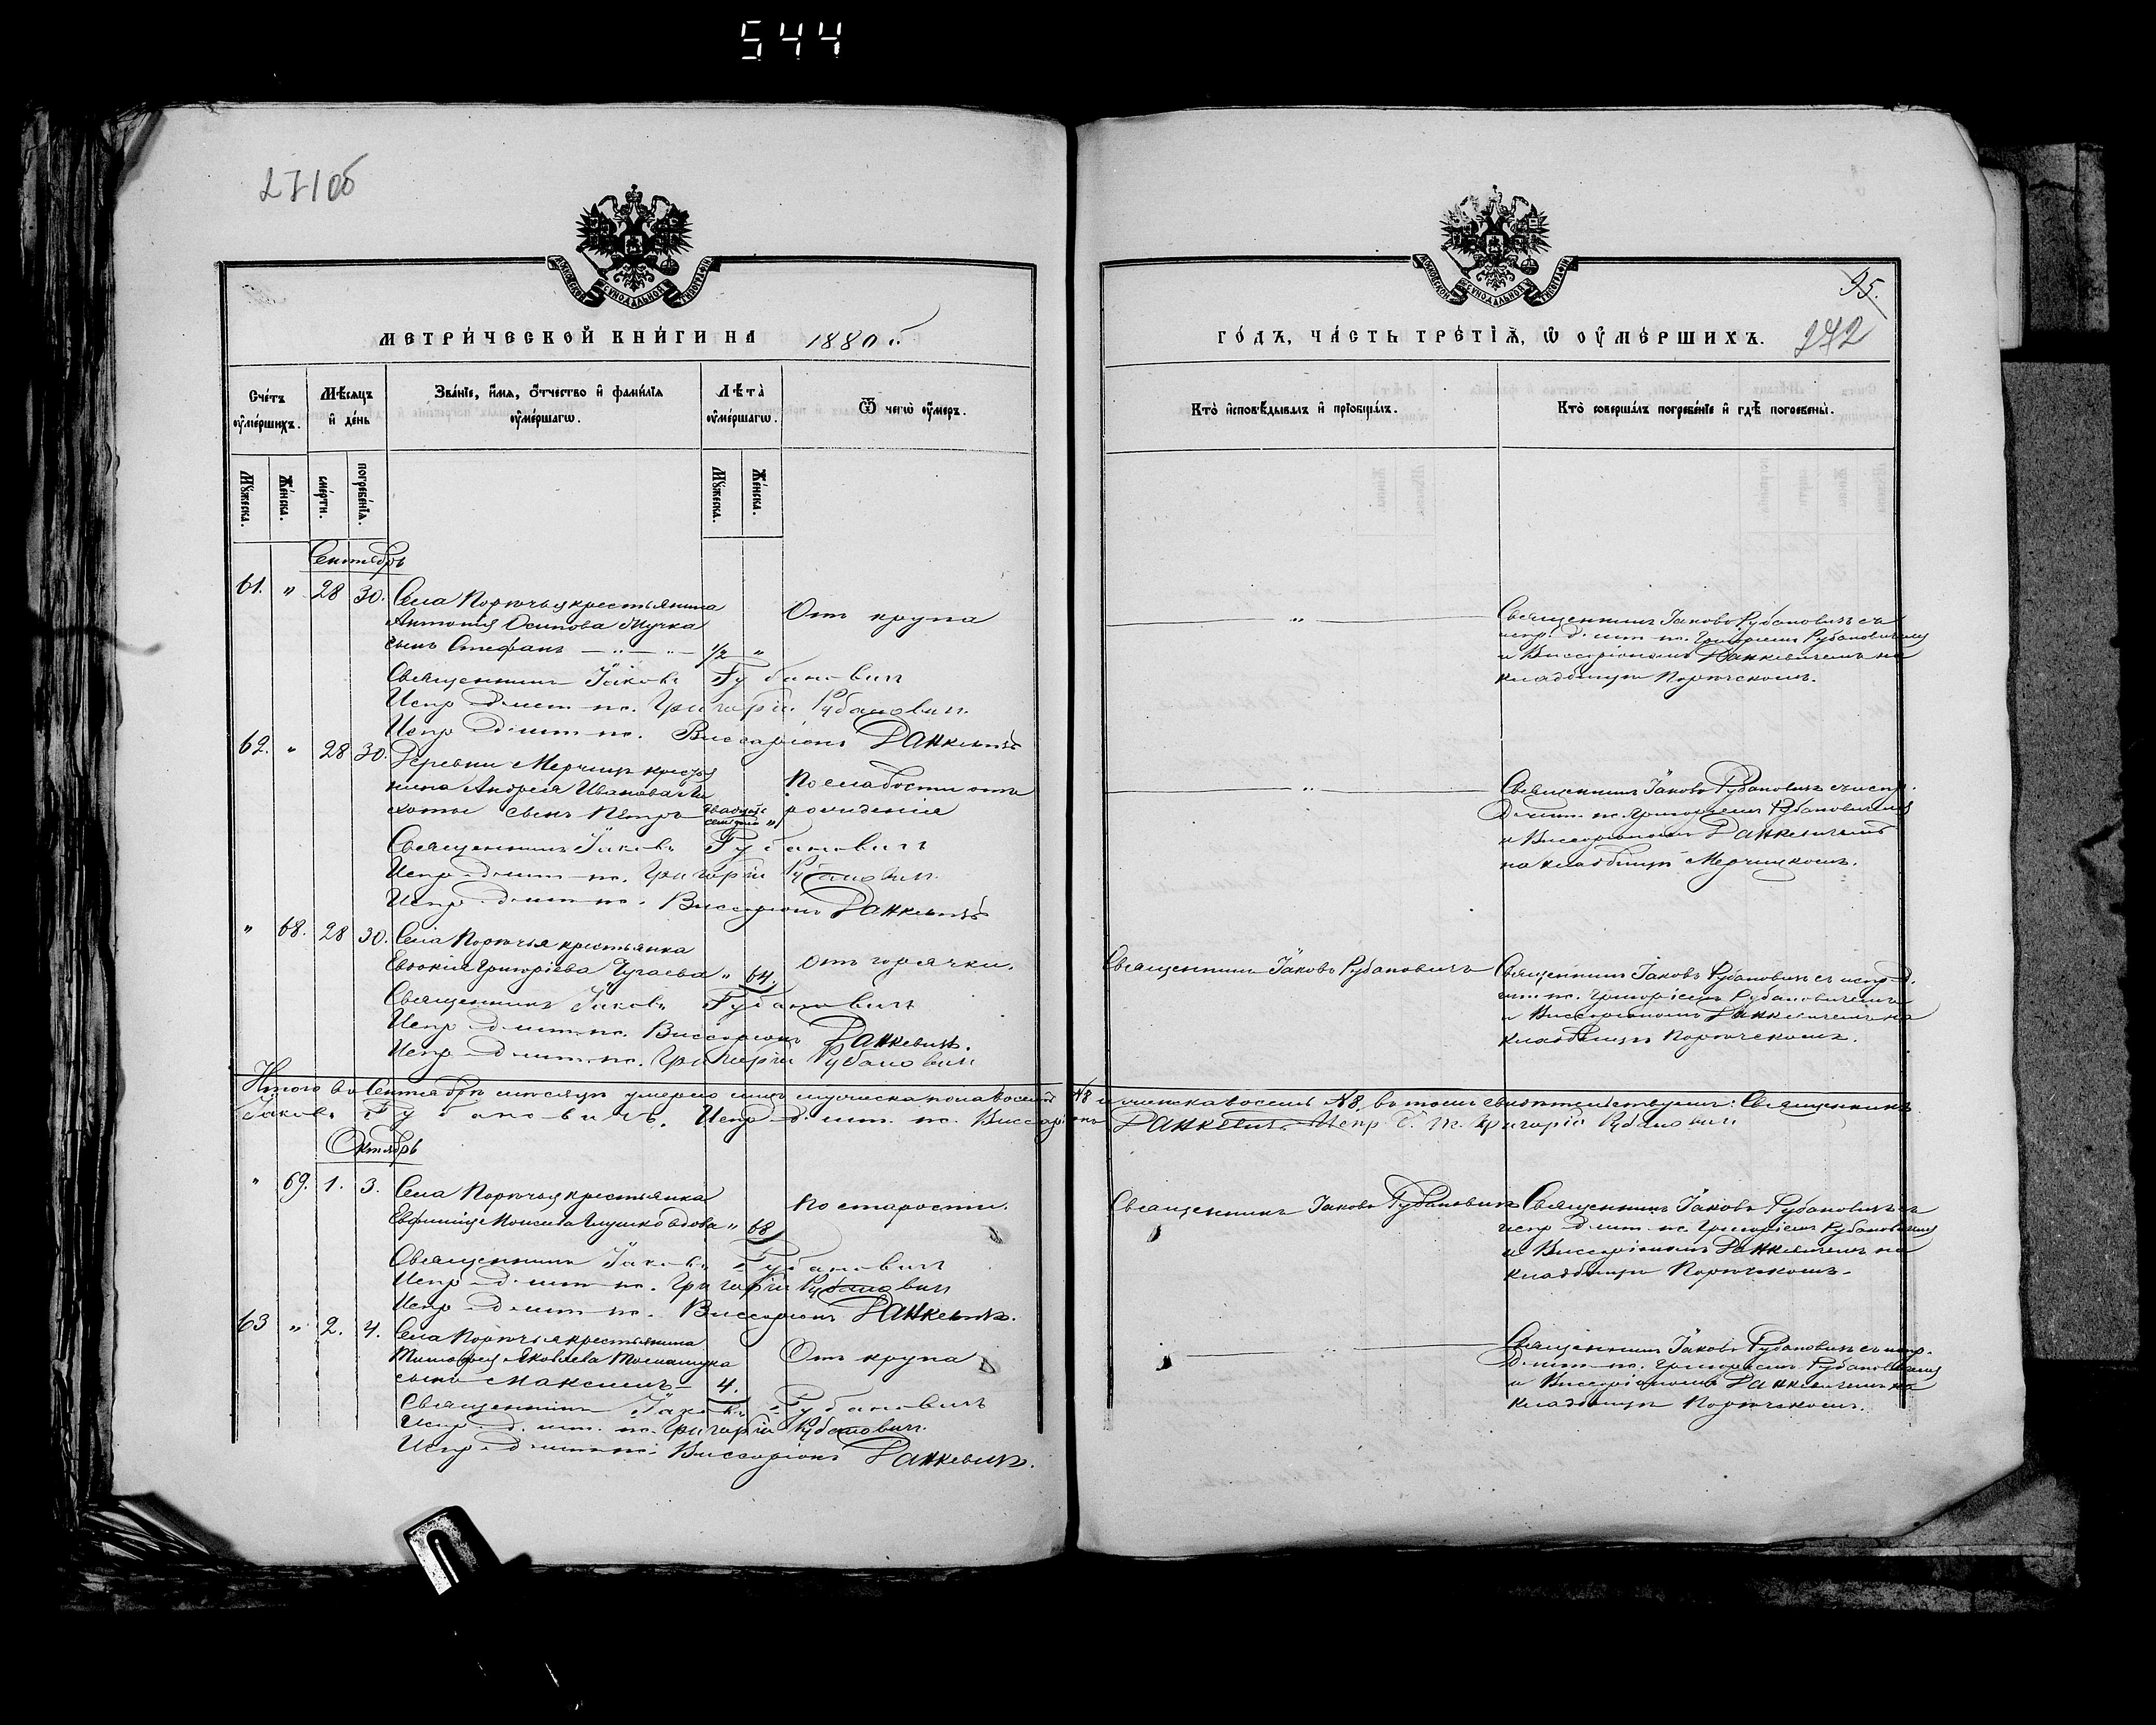 544
271 об
МОСКОВСКОЙ СУНОДАЛЬНОЙ ТИПОГРАФІИ
МЕТРИЧЕСКОЙ КНИГИ НА 1880 г.
Счетъ оумершихъ.
Мѣсяцъ и день
Званіе, имя, отчество и фамилія оумершагѡ.
Лѣта оумершагѡ.
Ѿ чегѡ оумеръ.
Мужеска.
Женска.
смерти.
погребенія.
Мужеска.
Женска.
Сентябрь
61. " 28 30. Села Порѣчья крестьянина
Антонія Осипова Мучка
сынъ Стефанъ 1/2 "
Отъ крупа
Священникъ Іаковъ Рубановичъ
Испр. д. пс. Григорій Рубановичъ
Испр. д. пс. Виссаріонъ Данкевичъ
62. " 28 30. Деревни Мерчицъ кресть
янина Андрея Иванова
сынъ Петръ
По слабости отъ
рожденія
Священникъ Іаковъ Рубановичъ
Испр. д. пс. Григорій Рубановичъ
Испр. д. пс. Виссаріонъ Данкевичъ
" 68. 28 30. Села Порѣчья крестьянка
Евдокія Григоріева Чугаева " 64.
Отъ горячки.
Священникъ Іаковъ Рубановичъ
Испр. д. пс. Виссаріонъ Данкевичъ.
Испр. д. пс. Григорій Рубановичъ
Итого въ Сентябрѣ мѣсяцѣ умерло мужеска пола восемь № 8
Іаковъ Рубановичъ. Испр. д. пс. Виссаріонъ
Октябрь
" 69. 1. 3. Села Порѣчья крестьянка
Евфимія Моисеева Глушко вдова " 68
По старости.
Священникъ Іаковъ Рубановичъ
Испр. д. пс. Григорій Рубановичъ
Испр. д. пс. Виссаріонъ Данкевичъ.
63 " 2. 4. Села Порѣчья крестьянина
Тимофея Яковлева Томашука
сынъ Максимъ 4.
Отъ крупа
Священникъ Іаковъ Рубановичъ
Испр. д. пс. Григорій Рубановичъ.
Испр. д. пс. Виссаріонъ Данкевичъ.
МОСКОВСКОЙ СУНОДАЛЬНОЙ ТИПОГРАФІИ
95.
272
ГОДЪ, ЧАСТЬ ТРЕТІЯ, Ѡ ОУМЕРШИХЪ.
Кто исповѣдывалъ и пріобщалъ.
Кто совершалъ погребеніе и гдѣ погребены.
"
Священникъ Іаковъ Рубановичъ съ
испр. д. пс. Григоріемъ Рубановичемъ
и Виссаріономъ Данкевичемъ на
кладбищѣ Порѣчскомъ.
"
Священникъ Іаковъ Рубановичъ съ испр.
д. пс. Григоріемъ Рубановичемъ
и Виссаріономъ Данкевичемъ
на кладбищѣ Мерчицкомъ.
Священникъ Іаковъ Рубановичъ
Священникъ Іаковъ Рубановичъ съ испр. д.
пс. Григоріемъ Рубановичемъ
и Виссаріономъ Данкевичемъ на
кладбищѣ Порѣчскомъ.
и женска восемь № 8, въ томъ свидѣтельствуемъ: Священникъ
Данкевичъ. Испр. д. пс. Григорій Рубановичъ
Священникъ Іаковъ Рубановичъ
Священникъ Іаковъ Рубановичъ съ
испр. д. пс. Григоріемъ Рубановичемъ
и Виссаріономъ Данкевичемъ на
кладбищѣ Порѣчскомъ.
Священникъ Іаковъ Рубановичъ съ испр.
д. пс. Григоріемъ Рубановичемъ
и Виссаріономъ Данкевичемъ на
кладбищѣ Порѣчскомъ.